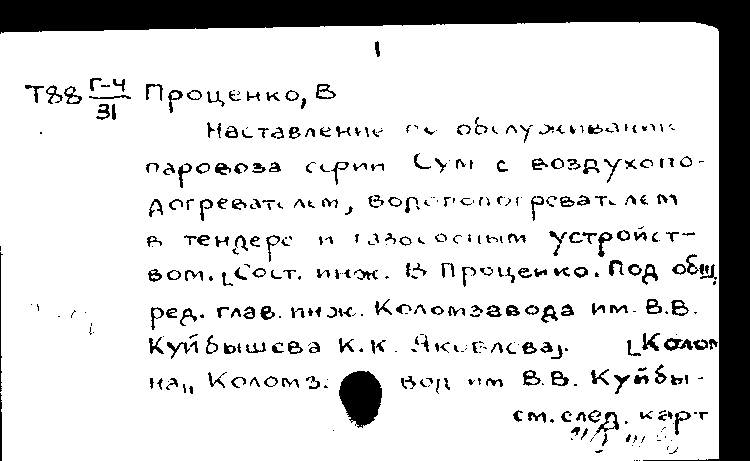 1
Т88 Г-4/31 Проценко, В
Наставление по обслуживанию
паровоза серии Сум с воздухопо-
догревателем, водоподогревателем
в тендере и газососным устройст-
вом. [Сост. инж. В Проценко. Под общ
ред. глав. инж. Коломзавода им. В.В.
Куйбышева К.К. Яковлева]. [Колом
на], Коломз. вод им В.В. Куйбы-
см. след. карт